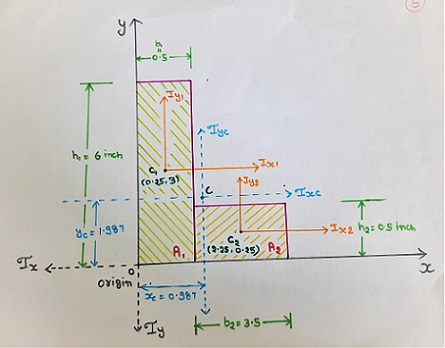 5
y
b₁
= 0.5
Iy₁
IyC
h₁ = 6 inch
C₁
(0.25,3)
Ix₁
Iy₂
IxC
C
yc = 1.987
C₂
(2.25,0.25)
Ix₂
h₂ = 0.5 inch
A₁
A₂
Ix
0
origin
x
xc = 0.987
b₂ = 3.5
Iy